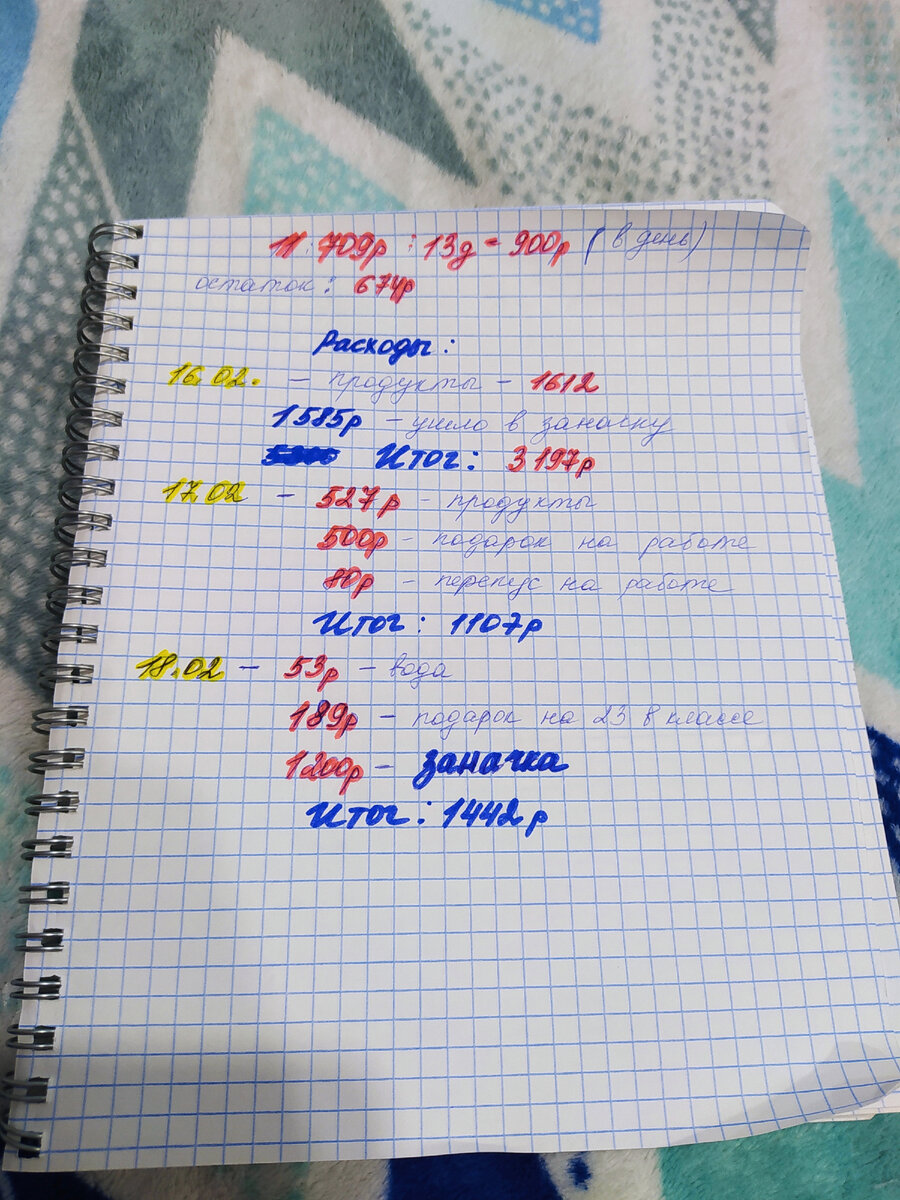 11 709р : 13д = 900р (в день)
остаток: 674р
Расходы:
16.02. — продукты — 1612
1585р — ушло в заначку
Итог: 3197р
17.02 — 527р — продукты
500р — подарок на работе
80р — перепус на работе
Итог: 1107р
18.02 — 53р — вода
189р — подарок на 23 в классе
1200р — заначка
Итог: 1442р